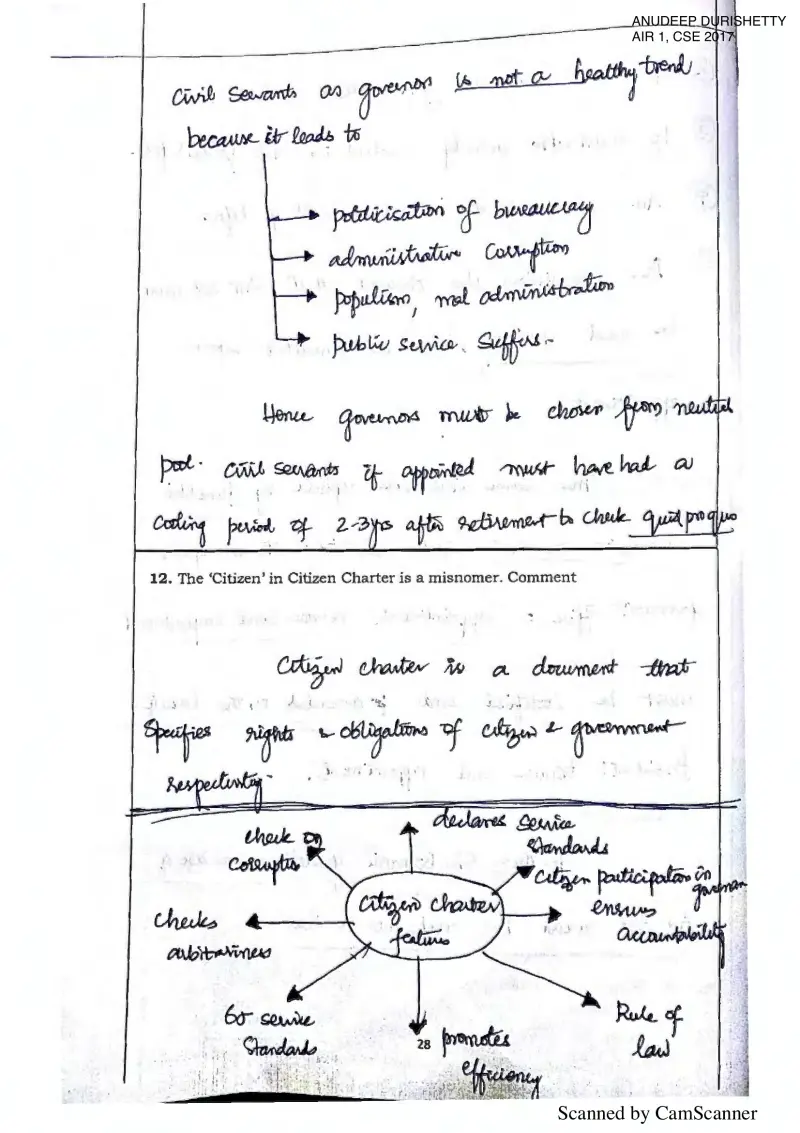 ANUDEEP DURISHETTY
AIR 1, CSE 2017
Civil Servants as governors is not a healthy trend
because it leads to
politicisation of bureaucracy
administrative Corruption
populism, mal administration
public service suffers.
Hence governors must be chosen from neutral
pool. Civil Servants if appointed must have had a
Cooling period of 2-3yrs after retirement to check quid pro quo
12. The ‘Citizen’ in Citizen Charter is a misnomer. Comment
Citizen charter is a document that
Specifies rights & obligations of citizen & government
respectively.
declares Service
Standards
check on
corruption
Citizen participation in
governance
ensures
accountability
Citizen charter
features
Checks
arbitrariness
service
Standards
28
promotes
efficiency
Rule of
law
Scanned by CamScanner